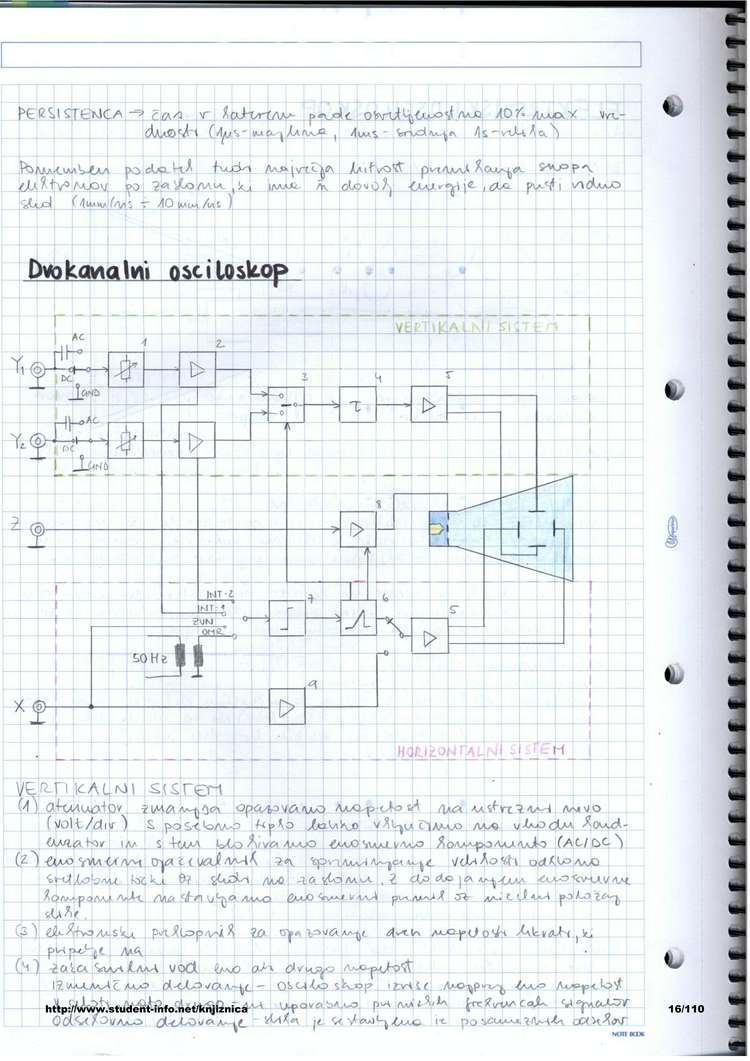 PERSISTENCA → čas v katerem pade osvetljenost na 10% max vre-
dnosti (1µs-majhna, 1ms-srednja 1s-velika)
Pomemben podatek tudi največja hitrost premikanja snopa
elektronov po zaslonu, ki ima še dovolj energije, da pusti vidno
sled (1mm/ns ÷ 10mm/ns)
Dvokanalni osciloskop
VERTIKALNI SISTEM
AC
1
2
Y1
DC
GND
3
4
5
τ
AC
Y2
DC
GND
8
Z
INT-2
INT-1
ZUN
OMR
7
6
5
50Hz
X
9
HORIZONTALNI SISTEM
VERTIKALNI SISTEM
(1) atenuator zmanjša opazovano napetost na ustrezni nivo
(volt/div) s posebno tipko lahko vključimo na vhodu kond-
enzator in s tem blokiramo enosmerno komponento (AC/DC)
(2) enosmerni ojačevalnik za spreminjanje velikosti odklona
svetlobne točke oz sledi na zaslonu. Z dodajanjem enosmerne
komponente nastavljamo enosmerni premik oz ničelni položaj
slike.
(3) elektronski preklopnik za opazovanje dveh napetosti hkrati, ki
pripelje na
(4) zakasnilni vod eno ali drugo napetost
Izmenično delovanje - osciloskop izriše najprej eno napetost
v celoti nato drugo - ni uporabno pri nizkih frekvencah signalov
Odsekovno delovanje - slika je sestavljena iz posameznih odsekov
http://www.student-info.net/knjiznica
16/110
NOTE BOOK